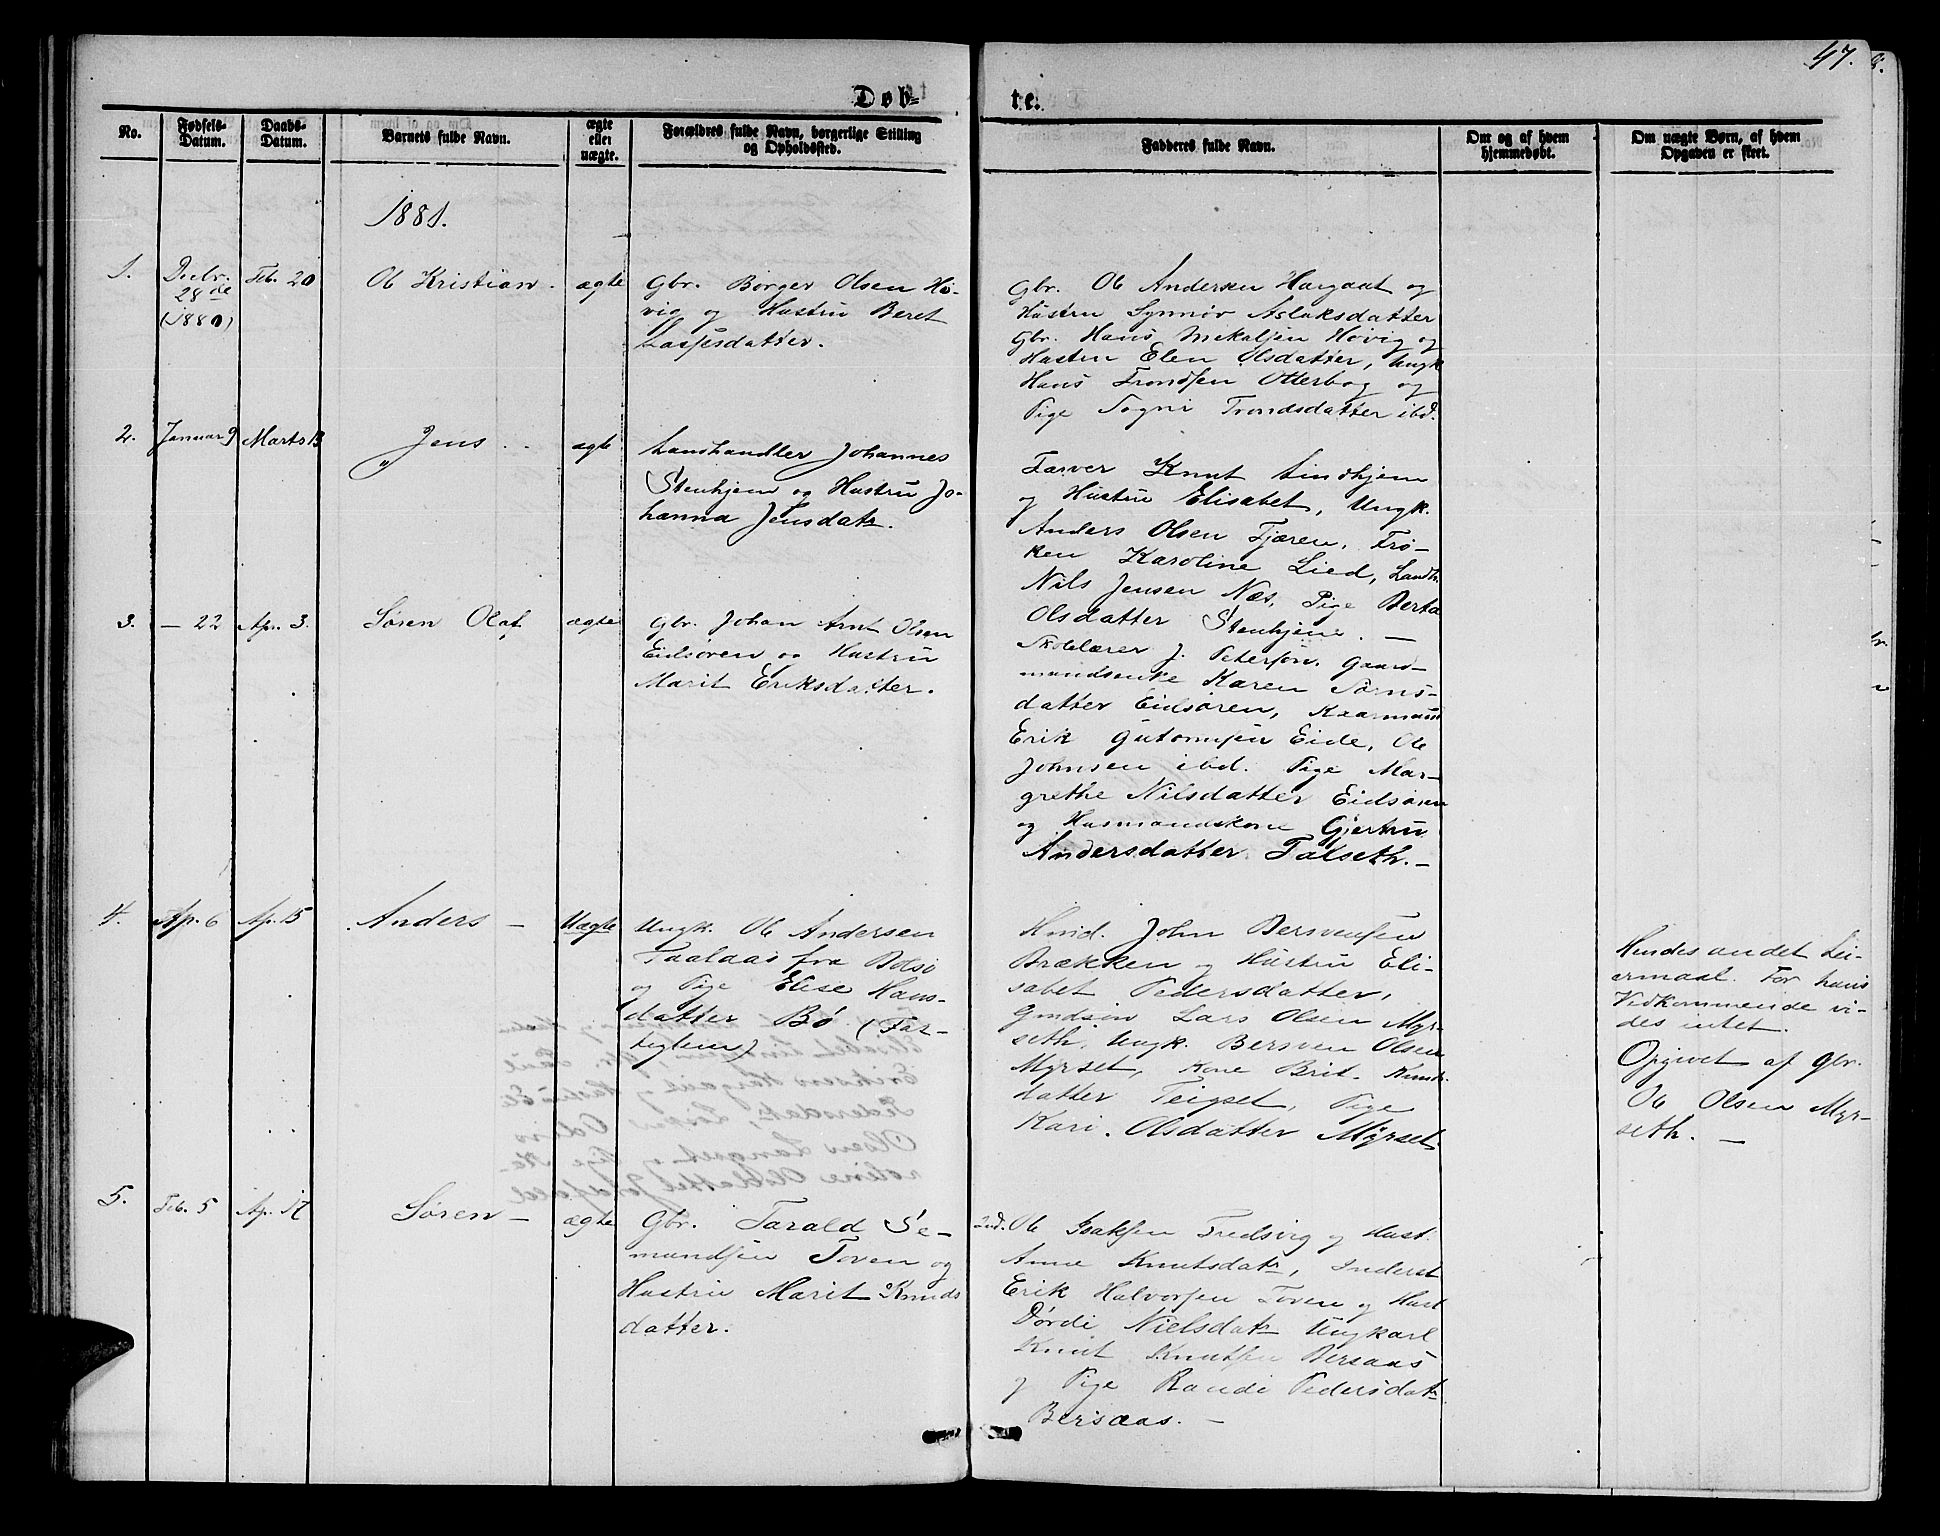 47.
Døb-
te.
No.
Fødsels-
Datum.
Daabs-
Datum.
Barnets fulde Navn.
ægte
eller
uægte.
Forældres fulde Navn, borgerlige Stilling
og Opholdssted.
Fadderes fulde Navn.
Om og af hvem
hjemmedøbt.
Om uægte Børn, af hvem
Opgaven er skeet.
1881.
1.
Decbr.
28de
(1880)
Feb. 20
Ole Kristian.
ægte
Gbr. Børger Olsen Hø-
vig og Hustru Beret
Lassesdatter.
Gbr. Ole Andersen Hargaut og
Hustru Synnøv Aslaksdatter
Gbr. Hans Mikalsen Høvig og
Hustru Elen Olsdatter, Ungk
Hans Trondsen Otterbog og
Pige Sogni Trondsdatter ibd.
2.
Januar 9
Marts 13
Jens
ægte
Landhandler Johannes
Stenhjem og Hustru Jo-
hanna Jensdatr.
Farver Knut Lindhjem
og Hustru Elisabet, Ungk.
Anders Olsen Fjæren, Frø-
ken Karoline Lied, Landh.
Nils Jensen Næs, Pige Berta
Olsdatter Stenhjem. —
3.
— 22
Apr. 3.
Søren Olaf
ægte
Gbr. Johan Arnt Olsen
Eidsøren og Hustru
Marit Eriksdatter.
Skolelærer J. Petersøn, Gaard-
mandsenke Karen Sørns-
datter Eidsøren, Kaarmand
Erik Gutormsen Eide, Ole
Johnsen ibd. Pige Mar-
grethe Nilsdatter Eidsøren
og Husmandskone Gjertru
Andersdatter Talseth. —
4.
Ap. 6
Ap. 15
Anders —
Uægte
Ungk. Ole Andersen
Taalaas fra Bolsø
og Pige Elise Hans-
datter Bø (Far-
teglem)
Hmd. John Bersvensen
Brækken og Hustru Eli-
sabet Pedersdatter,
Gmdsøn Lars Olsen Myr-
seth, Ungk. Bersven Olsen
Myrset, Kone Brit. Knuds-
datter Teigset, Pige
Kari. Olsdatter Myrset
Hendes andet Lei-
ermaal. For hans
Vedkommende vi-
des intet.
Opgivet af Gbr.
Ole Olsen Myr-
seth. —
5.
Feb. 5
Ap. 17
Søren —
ægte
Gbr. Tarald Se-
mundsen Toven og
Hustru Marit Knuds
datter.
Ind. Ole Isaksen Fredsvig og Hust.
Anne Knutsdatr, Inderst
Erik Halvorsen Toven og Hust
Dørdi Nielsdatr Ungkarl
Knut Knutsen Bersaas
og Pige Randi Pedersdatr
Bersaas. —